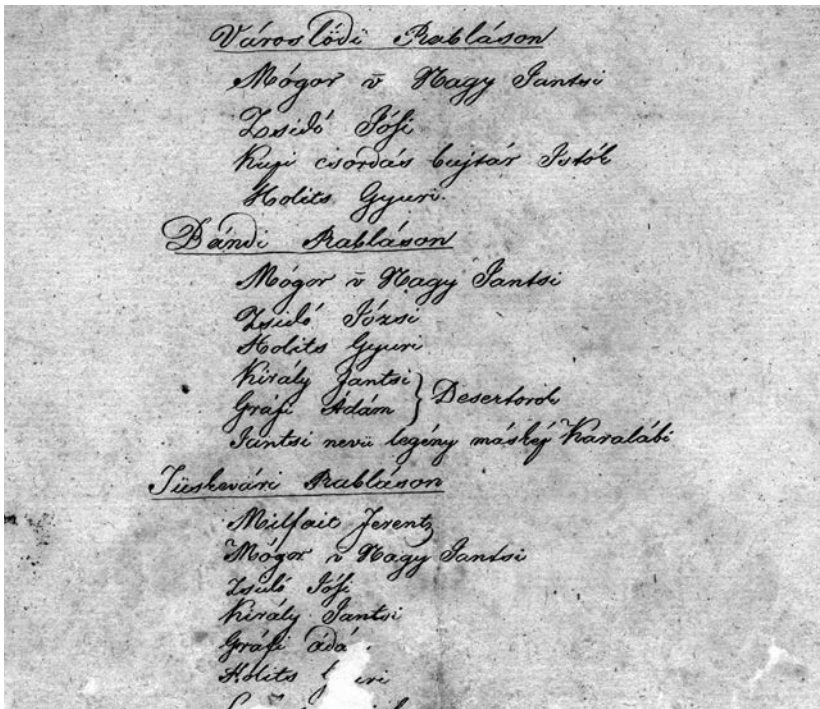 Városlődi Rabláson
Mógor v̄ Nagy Jantsi
Zsidó Jósi
Kupi csordás bujtár Istók
Holits Gyuri.
Bándi Rabláson
Mógor v̄ Nagy Jantsi
Zsidó Józsi
Holits Gyuri
Király Jantsi
Gráfi Ádám } Desertorok
Jantsi nevü legény máskép Karalábi
Tüskevári Rabláson
Milfait Ferentz
Mógor v̄ Nagy Jantsi
Zsidó Jósi
Király Jantsi
Gráfi
Holits